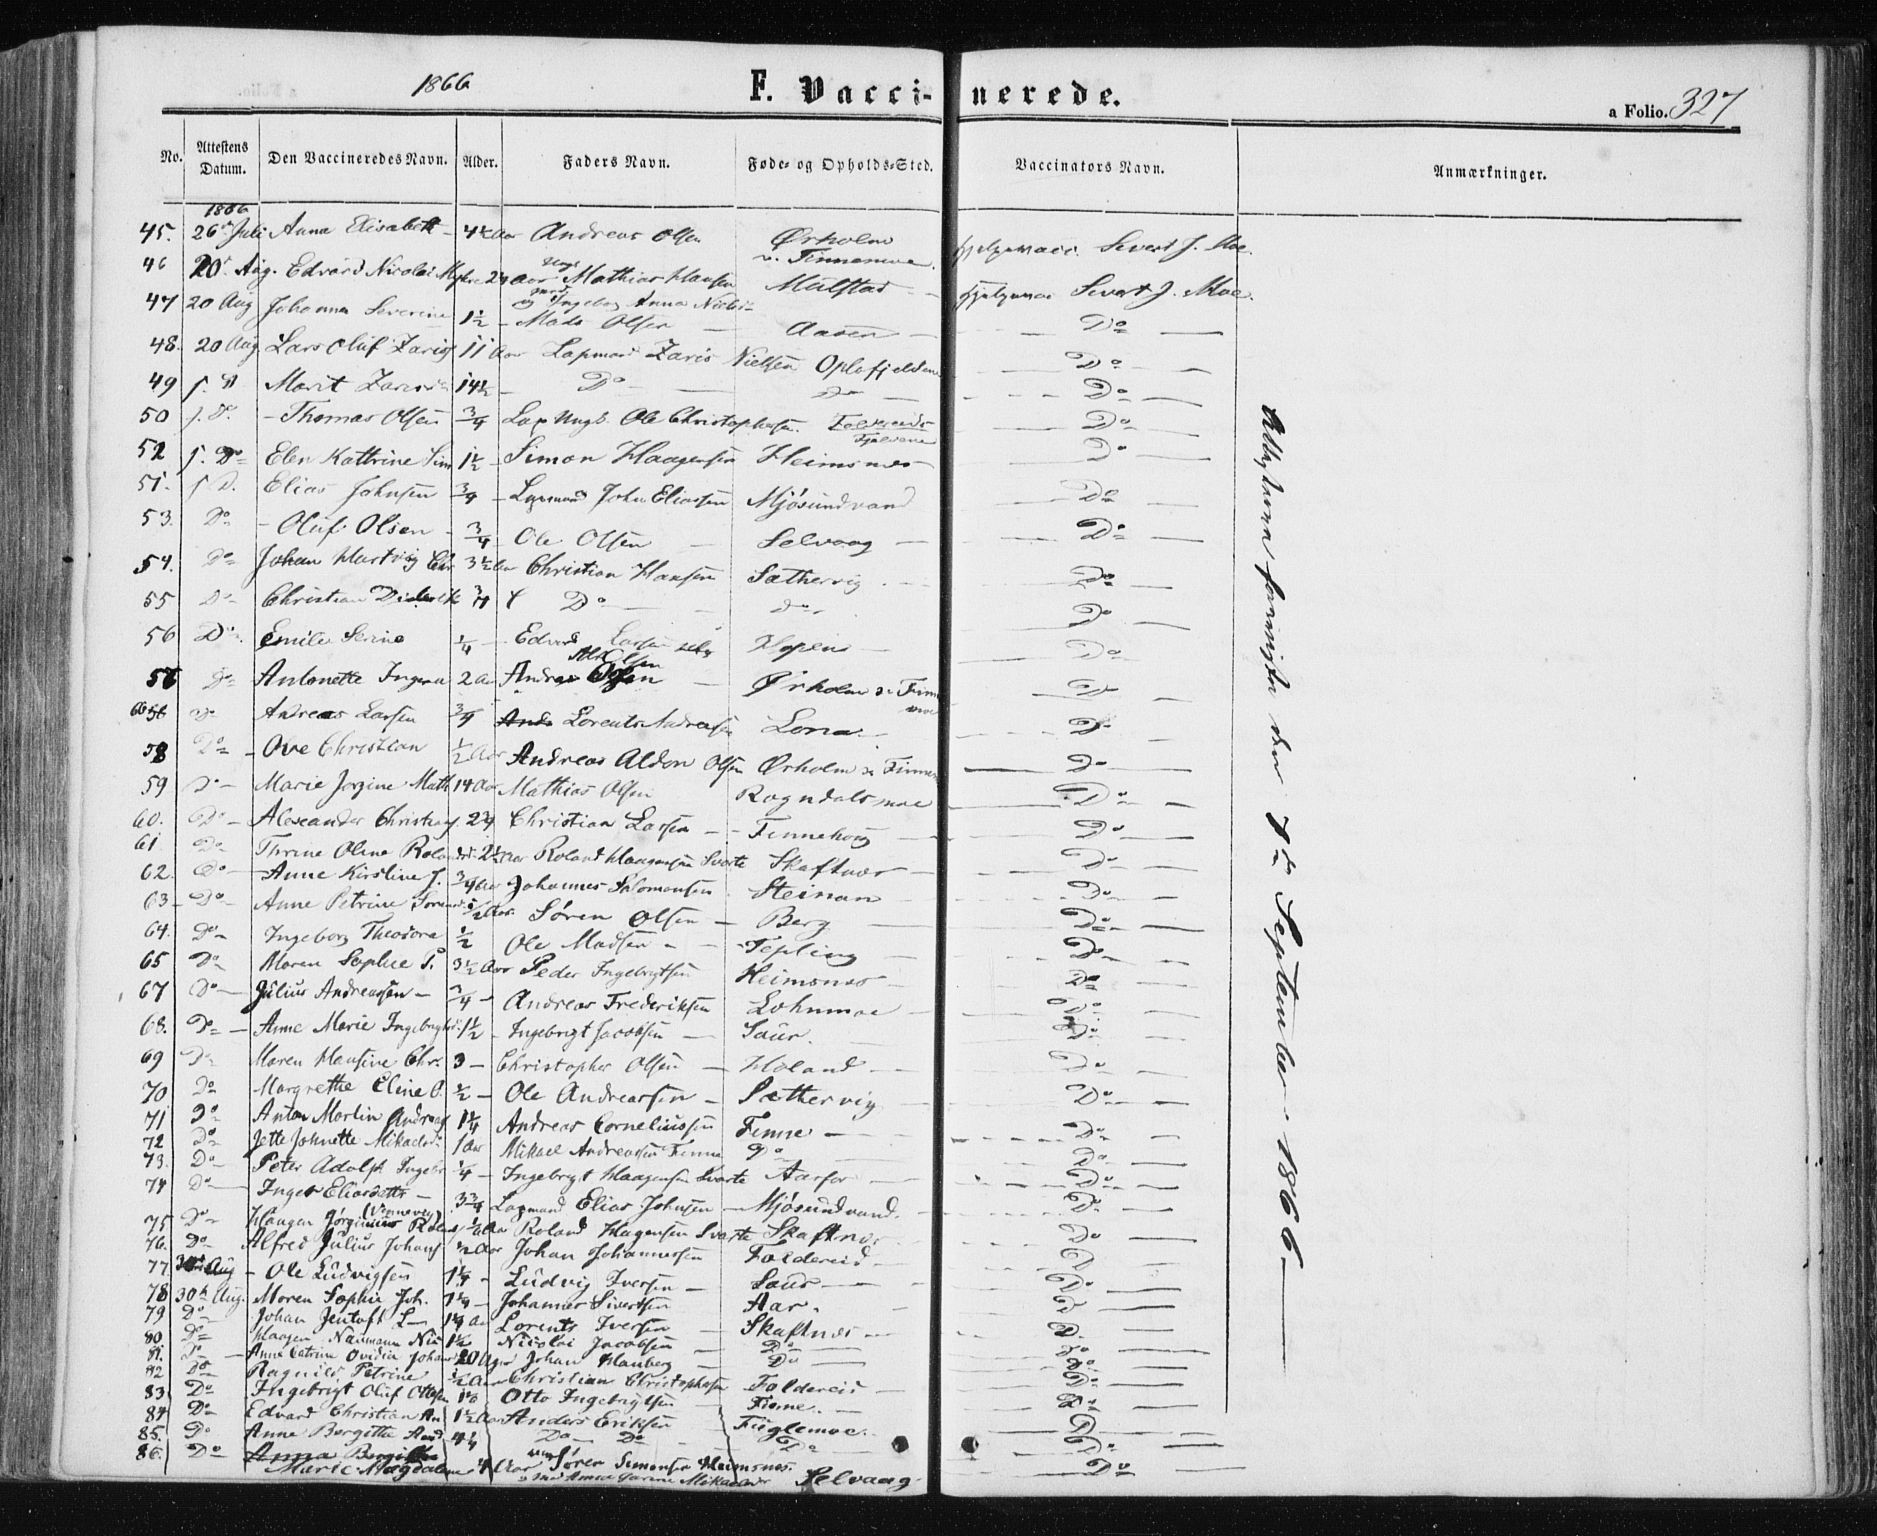 1866 F. Vaccinerede. a Folio. 327
No. Attestens Datum. Den Vaccineredes Navn. Alder. Faders Navn. Føde- og Opholds-Sted. Vaccinators Navn. Anmærkninger.
1866
45. 26de Juli Anna Elisabeth 4½ Aar Andreas Olsen Ørholm v. Finnemoe. Hjelpevacc. Sivert J. Moe.
46 20de Aug. Edvard Nicolai 2¼ Aar Ungk Mathias Hansen Mulstad Hjelpevacc Sivert J. Moe.
og Ingeborg Anna
47 20 Aug Johanna Severine 1½ Mads Olsen Aasen Do
48. 20 Aug Lars Oluf Zaris 11 Aar Lapmand Zaris Nielsen Oplofjeldene Do
49 f. D Marit 14½ Do Do Do
50 f. D. Thomas Olsen ¾ Lap Ungk. Ole Christophersen Foldereids Fjeldene Do
52 f. Do Elen Kattrine Sim 1½ Simon Haagensen Heimsnes Do
51. f D. Elias Johnsen ¾ Lapmand John Eliassen Mjøsundvand Do
53. Do Oluf Olsen ¾ Ole Olsen Selvaag Do
54. Do Johan Hartvig Chr 3½ Aar Christian Hansen Sæthervig Do
55 Do Christian Diderik ¾ Do Do Do
56 Do Emilie Serine ¼ Edvard Larsen Hopen Do
56 Do Antonette Ingeva 2 Aar Andreas Ald Olsen Ørholm v. Finnemoe Do
Do Andreas Larsen ¾ Lorents Andreasen Lona Do
58 Do Ove Christian ½ Aar Andreas Aldon Olsen Ørholm v. Finnem Do
59 Do Marie Jorgine Math 14 Aar Mathias Olsen Rogndalsmoe Do
60. Do Alexander Christians. 2¾ Christian Larsen Finnehoug Do
61. Do Thrine Oline Rolands 2½ Aar Roland Haagensen Svarte Skaftnæs Do
62. Do Anne Kirstine J. ¾ Aar Johannes Salomonsen Steinan Do
63 Do Anne Petrine Sørensd. ½ Aar Søren Olsen Berg Do
64. Do Ingeborg Theodora ½ Ole Madsen Tepling Do
65 Do Maren Sophie P. 3½ Aar Peder Ingebrigtsen Heimsnes Do
67 Do Julius Andreassen ¾ Andreas Frederiksen Lohnmoe Do
68. Do Anne Marie Ingebrigtsd. 1½ Ingebrigt Jacobsen Saur. Do
69 Do Maren Hansine Chr. 3 Christopher Olsen Holand Do
70 Do Margrethe Eline O. ½ Ole Andreassen Sæthervig Do
71 Do Anton Martin Andreas 1¼ Andreas Corneliussen Finne Do
72 Do Jette Johnette Mikaelsd. 1 Aar Mikael Andreassen Finne Do Do
73. Do Peter Adolph Ingebr ¼ Ingebrigt Haagensen Svarte Aarfor Do
74 Do Inger Eliasdatter 3¾ Lapmand Elias Johnsen Mjøsundvand. Do
75 Do Haagen Jørginius Roland ½ Aar Roland Hagensen Svarte Skaftnes Do
76. Do Alfred Julius Johans ½ Aar Johan Johannessen Foldereid Do
77 30te Aug Ole Ludvigsen 1¼ Ludvig Iversen Saur Do
78 30te Aug. Maren Sophie Joh. 1¼ Johannes Sivertsen Aar. D
79 Do Johan Jentoft L 1¼ Aar Lorents Iversen Skaftnæs D.
80 Do Haagen Naumann Nic 1½ Nicolai Jacobsen Do Do
81. Do Anne Catrine Ovidia Johans 20 Uger Johan Hanberg Do Do
82 Do Ragnild Petrine ½ Aar Christian Christophersen Foldereid Do
83 Do Ingebrigt Oluf Ottesen Otto Ingebrigtsen Finne. Do
84 Do Edvard Christian An 1½ Aar Anders Eriksen Fuglemoe. D
85. Do Anne Bergitte And 4¼ Do Do Do Do
86. Do Anna Bergitta
Marie Magdalene ¼ Aar Søren Simonsen Heimsnes. Do
Anna Mikaelsd Selvaag
September 1866